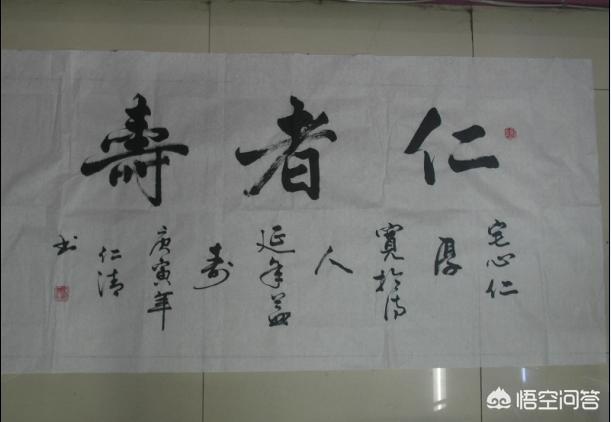 仁者壽
宅心仁
厚
寬於待
人
延年益
寿
庚寅年
仁清
书
悟空问答